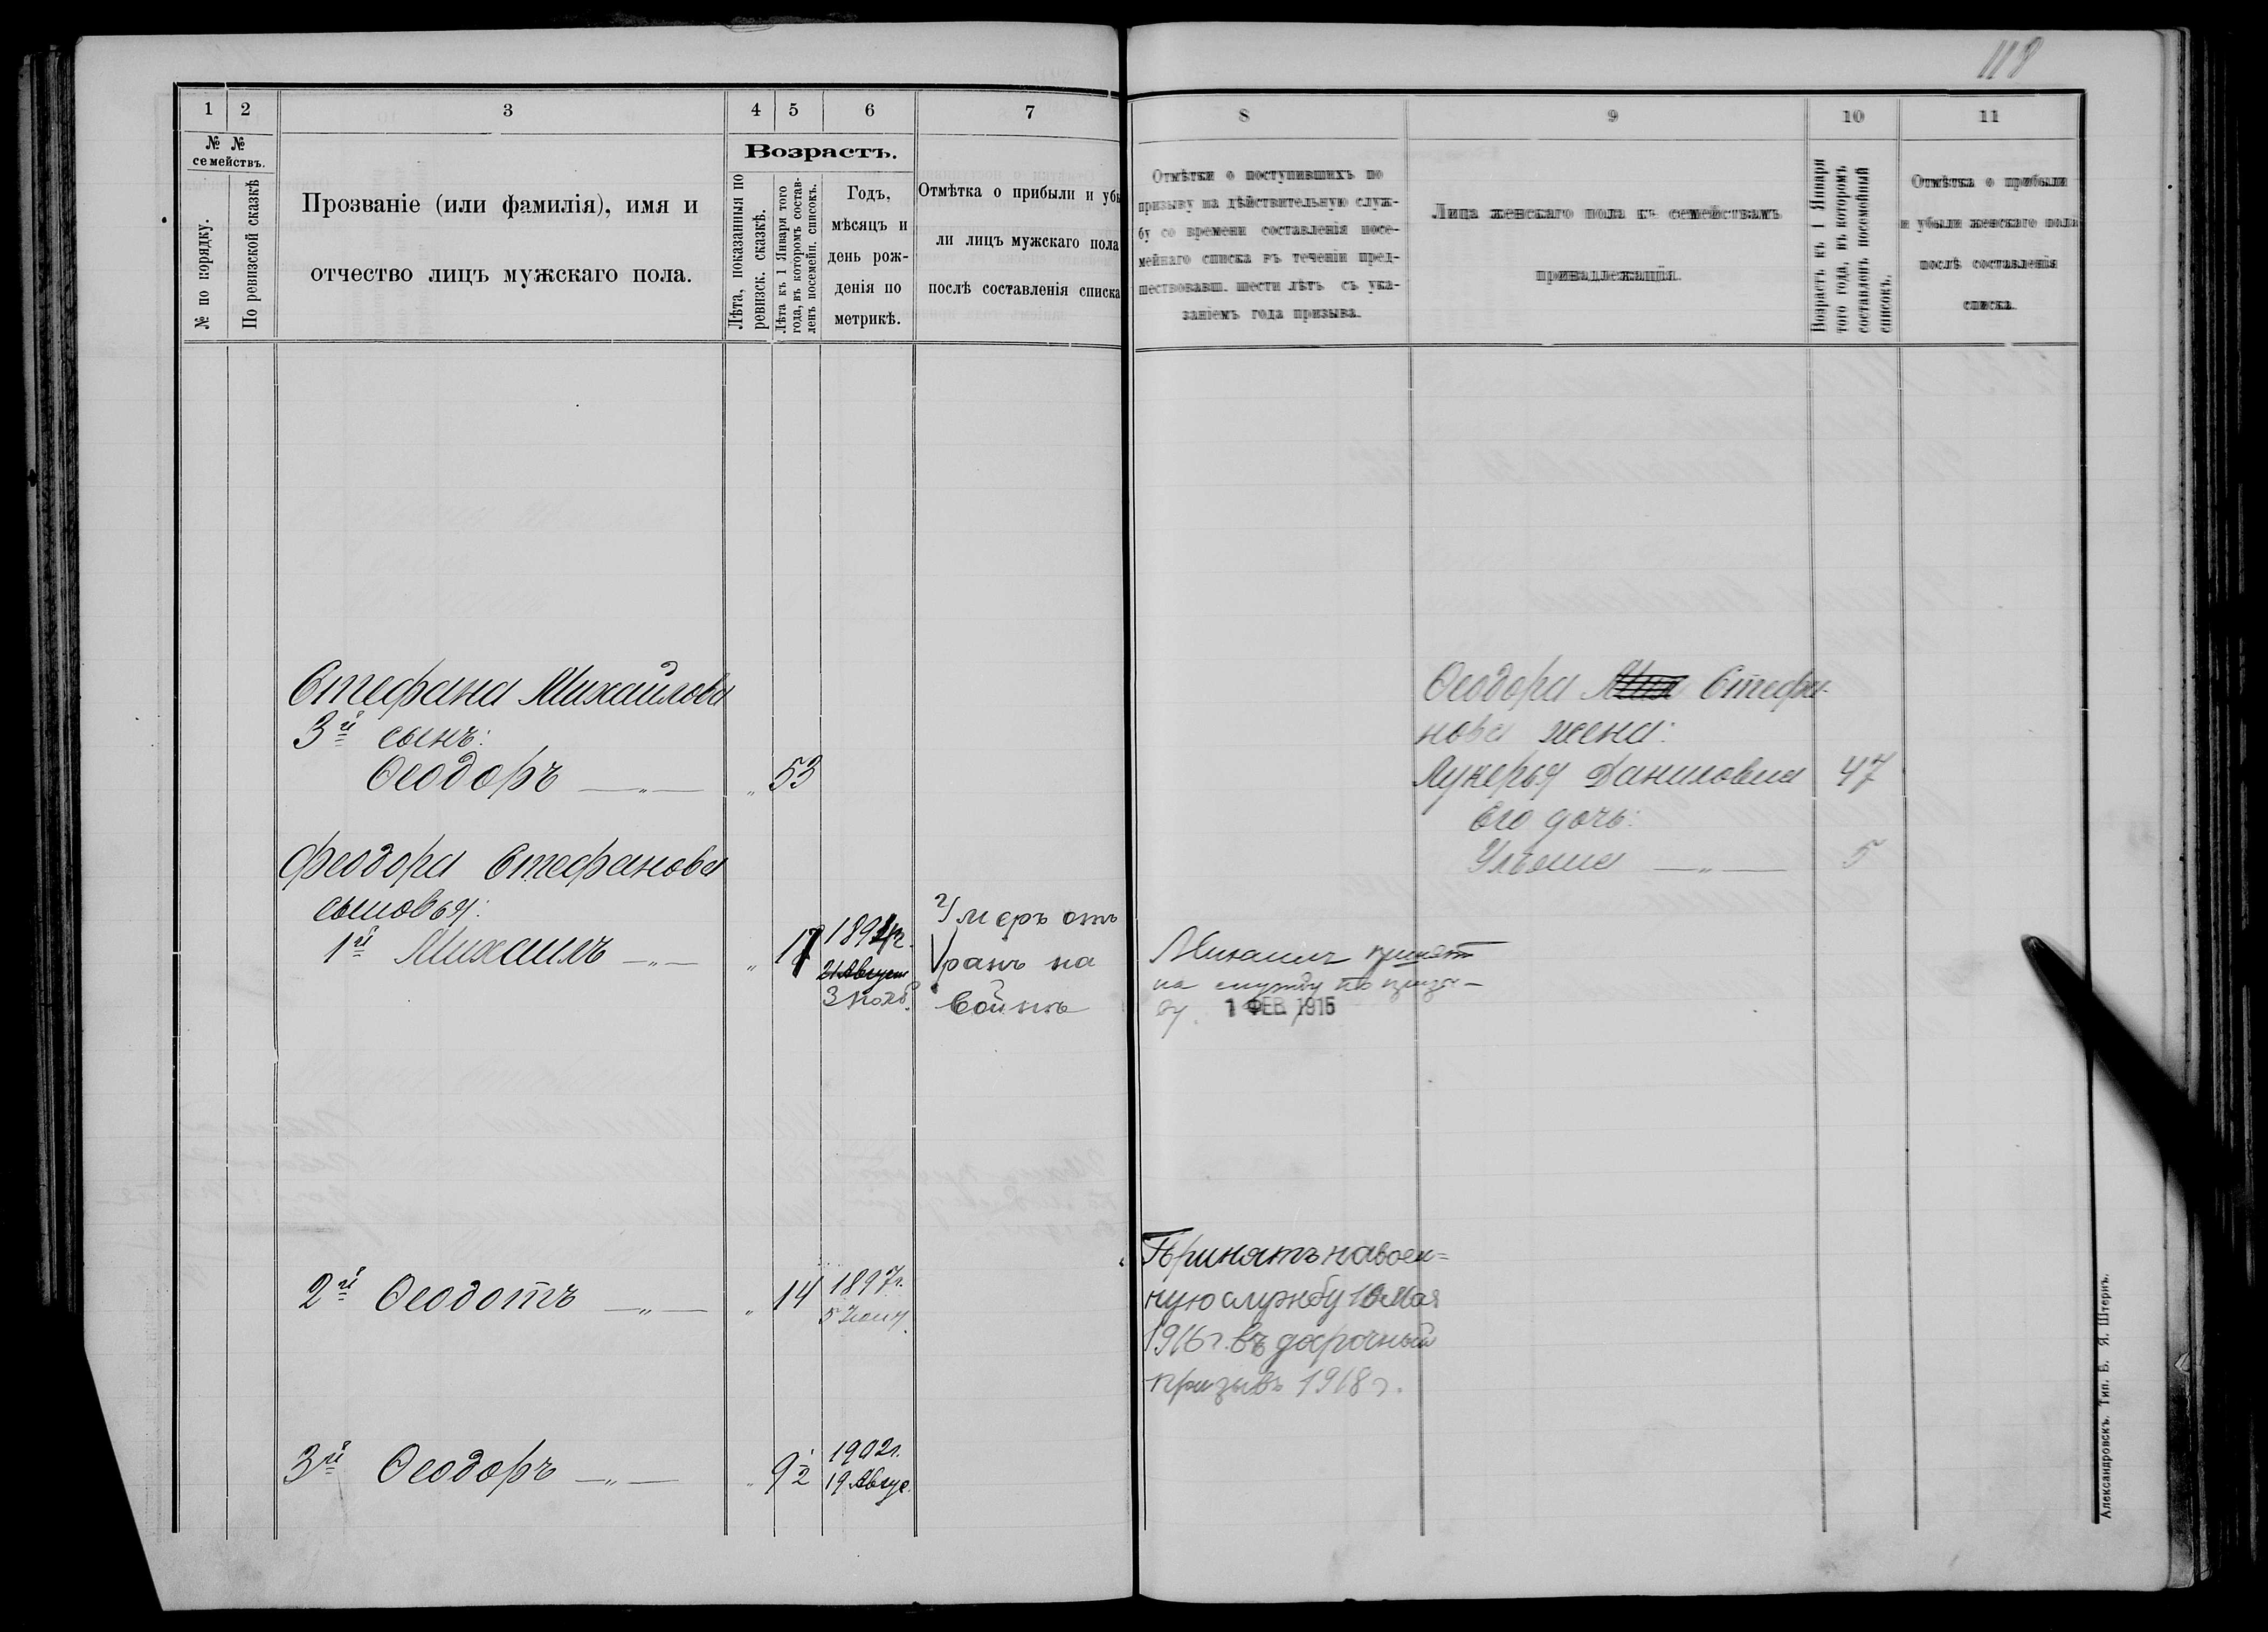 119
1 2 3 4 5 6 7
№ №
семействъ.
№ по порядку.
По ревизской сказкѣ
Прозваніе (или фамилія), имя и
отчество лицъ мужскаго пола.
Возрастъ.
Лѣта, показанныя по
ревизск. сказкѣ.
Лѣта къ 1 Января того
года, въ которомъ состав-
ленъ посемейн. списокъ.
Годъ,
мѣсяцъ и
день рож-
денія по
метрикѣ.
Отмѣтка о прибыли и убы
ли лицъ мужскаго пола
послѣ составленія списка
Стефана Михайлова
3й сынъ:
Ѳеодоръ —„— „ 53
Феодора Стефанова
сыновья:
1й Михаилъ —„— „ 17
1894г.
21 Август
3 Нояб.
Умеръ отъ
ранъ на
войнѣ
2й Ѳеодотъ —„— „ 14 1897г.
5 Іюня.
3й Ѳеодоръ —„— „ 9½ 1902г.
19 Авгус.
8 9 10 11
Отмѣтки о поступившихъ по
призыву на дѣйствительную служ-
бу со времени составленія посе-
мейнаго списка въ теченіи пред-
шествовавш. шести лѣтъ съ ука-
заніемъ года призыва.
Лица женскаго пола къ семействамъ
принадлежащія.
Возрастъ къ 1 Января
того года, въ которомъ
составленъ посемейный
списокъ.
Отмѣтка о прибыли
и убыли женскаго пола
послѣ составленія
списка.
Ѳеодора Стефа-
нова жена:
Лукерья Даниловна 47
Его дочь:
Ульяна —„— 5
Михаилъ принят
на службу по призы-
ву. 1 ФЕВ. 1915
Принятъ на воен=
ную службу 10 Мая
1916г. въ досрочный
призывъ 1918г.
Александровскъ. Тип. Б. Я. Штернъ.